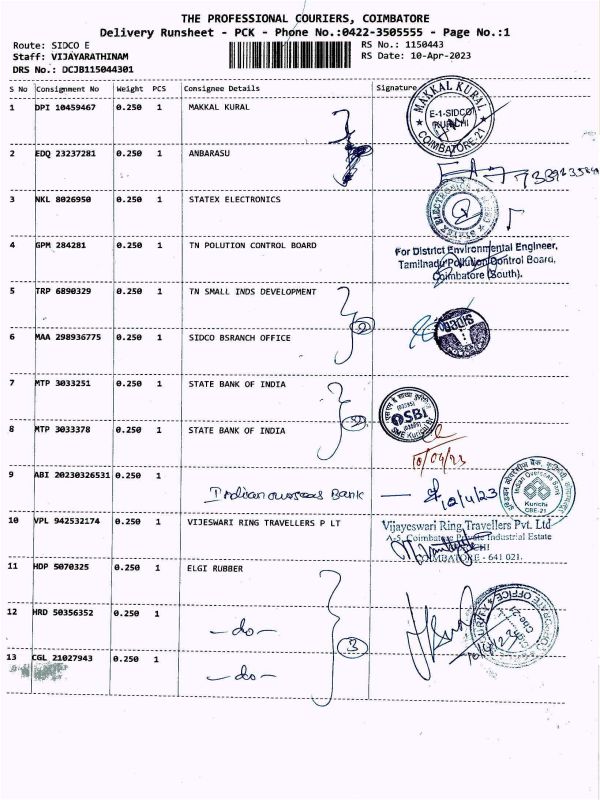 THE PROFESSIONAL COURIERS, COIMBATORE
Delivery Runsheet - PCK - Phone No.:0422-3505555 - Page No.:1
Route: SIDCO E
RS No.: 1150443
Staff: VIJAYARATHINAM
RS Date: 10-Apr-2023
DRS No.: DCJB115044301
S No Consignment No Weight PCS Consignee Details Signature
1 DPI 10459467 0.250 1 MAKKAL KURAL
MAKKAL KURAL
E-1-SIDCO
KURICHI
COIMBATORE 21
2 EDQ 23237281 0.250 1 ANBARASU
3 NKL 8026950 0.250 1 STATEX ELECTRONICS
4 GPM 284281 0.250 1 TN POLUTION CONTROL BOARD
For District Environmental Engineer,
Tamilnadu Pollution Control Board,
Coimbatore (South).
5 TRP 6890329 0.250 1 TN SMALL INDS DEVELOPMENT
6 MAA 298936775 0.250 1 SIDCO BSRANCH OFFICE
SIDCO
7 MTP 3033251 0.250 1 STATE BANK OF INDIA
SBI
8 MTP 3033378 0.250 1 STATE BANK OF INDIA
10/04/23
9 ABI 20230326531 0.250 1
Indian overseas Bank — 10/4/23
Indian Overseas Bank
Kurichi
CBE-21
10 VPL 942532174 0.250 1 VIJESWARI RING TRAVELLERS P LT
Vijayeswari Ring Travellers Pvt. Ltd
A-5, Coimbatore Private Industrial Estate
COIMBATORE - 641 021.
11 HDP 5070325 0.250 1 ELGI RUBBER
12 HRD 50356352 0.250 1 —do—
3
13 CGL 21027943 0.250 1 —do—